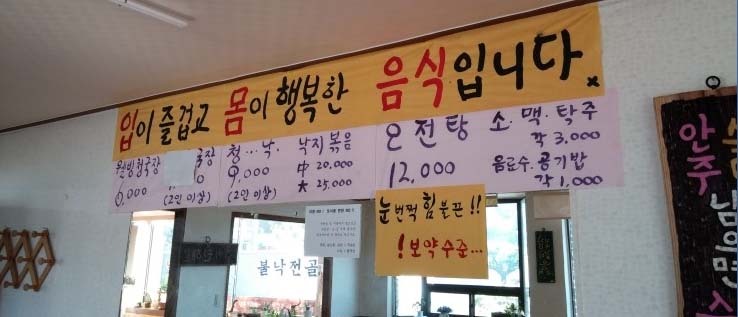 입이 즐겁고 몸이 행복한 음식입니다.
웰빙청국장
6,000
국장
(2인 이상)
청...낙.
9,000
(2인 이상)
낙지볶음
中 20,000
大 25,000
오전탕
12,000
소.맥.탁주
각 3,000
음료수.공기밥
각 1,000
눈번쩍 힘불끈!!
!보약수준...
불낙전골
안주